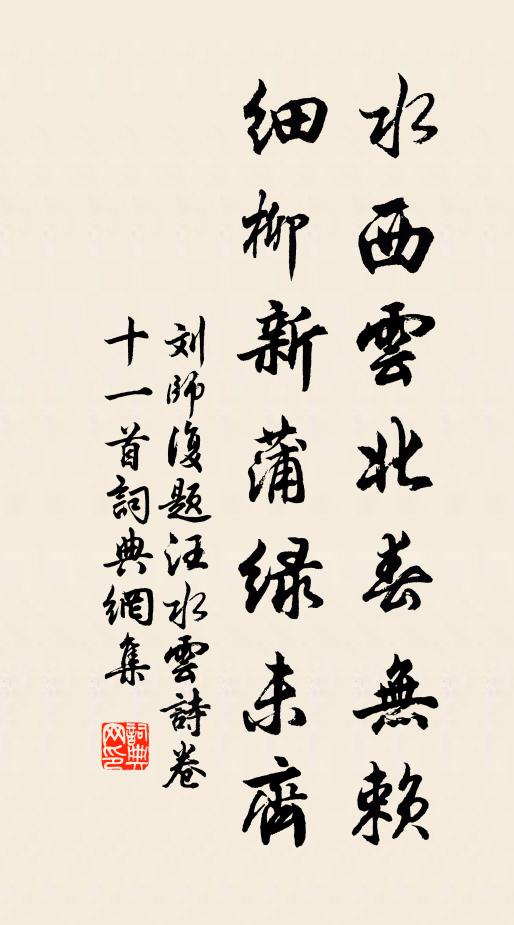 水西雲北春無賴
細柳新蒲緑未齊
刘師復題汪水雲詩卷
十一首詞典網集
詞典
网印